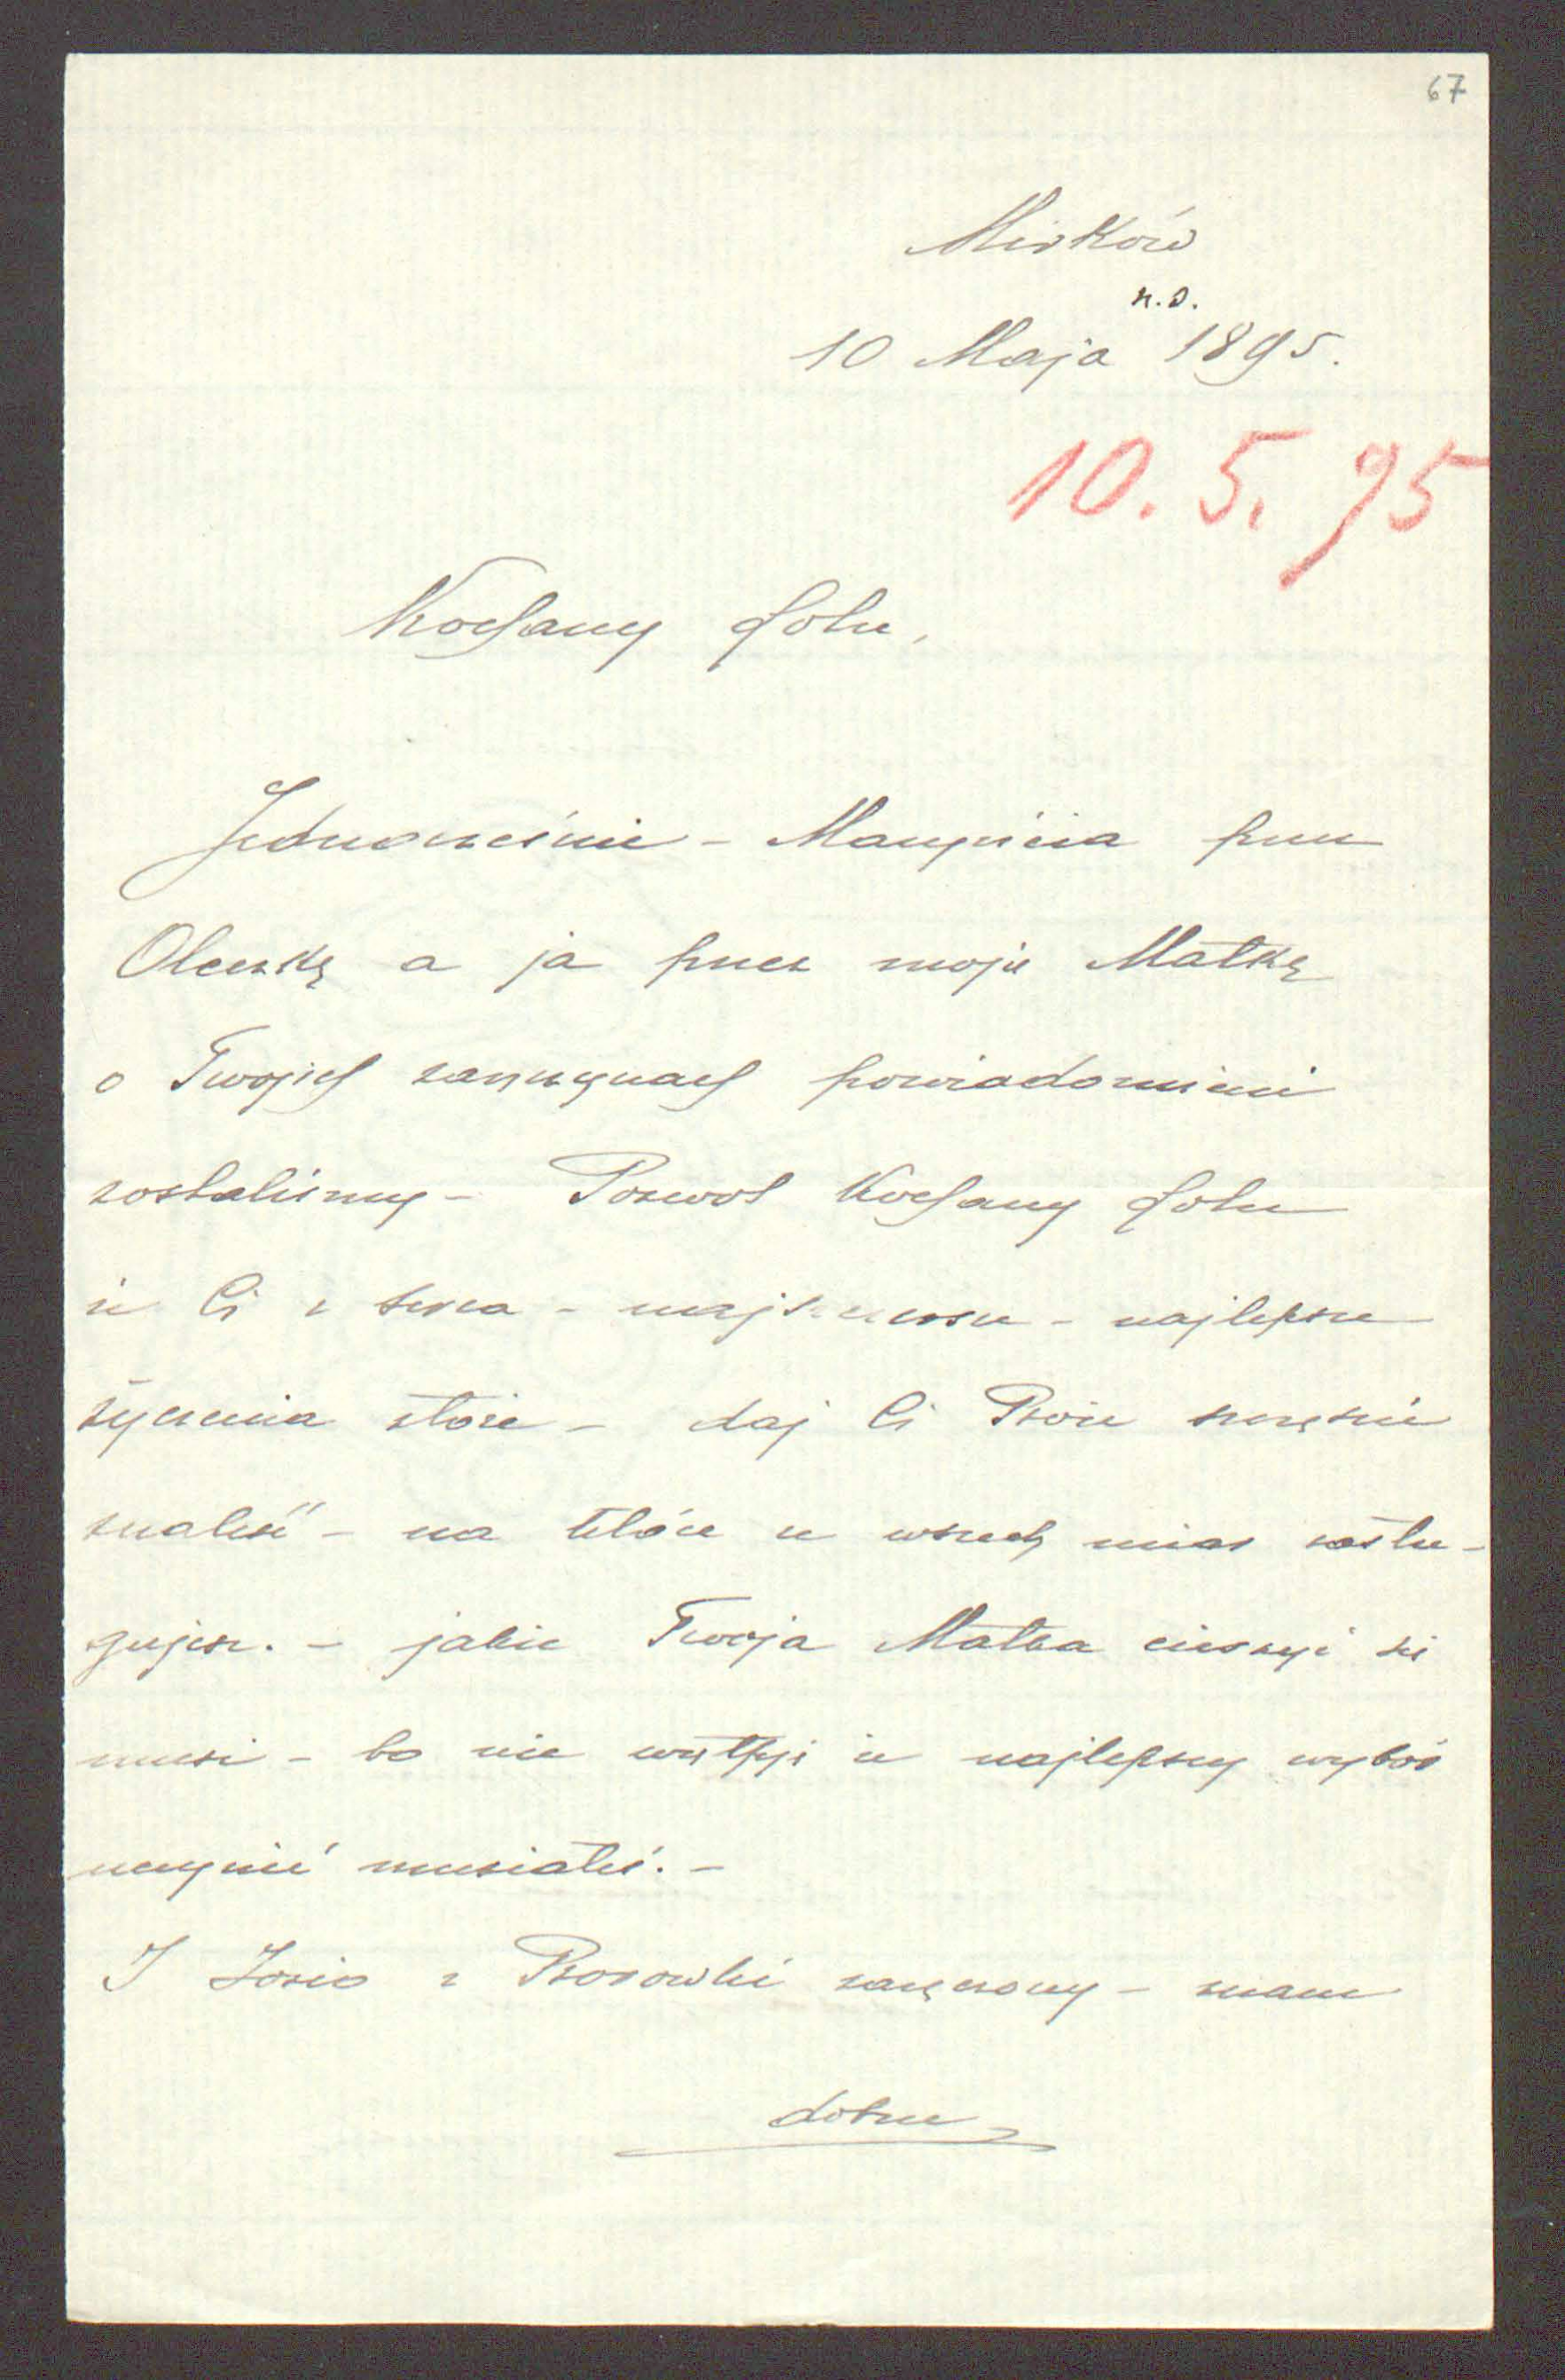 67
Mirków
n.s.
10 Maja 1895.
10. 5. 95
Kochany Lolu,
Jednocześnie - Maryńcia przez
Oleńkę a ja przez moje Matkę
o Twojich zaręczynach powiadomieni
zostaliśmy - Pozwol Kochany Lolu
że Ci z serca - najszczersze - najlepsze
życzenia złoże - daj Ci Boże szczęście
znaleść - na które ze wszech miar zasłu-
gujesz. - jakże Twoja Matka cieszyć się
musi - bo nie wątpję że najlepszy wybór
uczynić musiałeś. -
I Józio z Brzozówki zaręczony - znam
dobrze